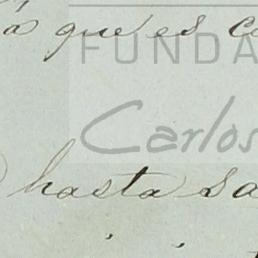 á que es co
FUNDA
Carlos
hasta sa